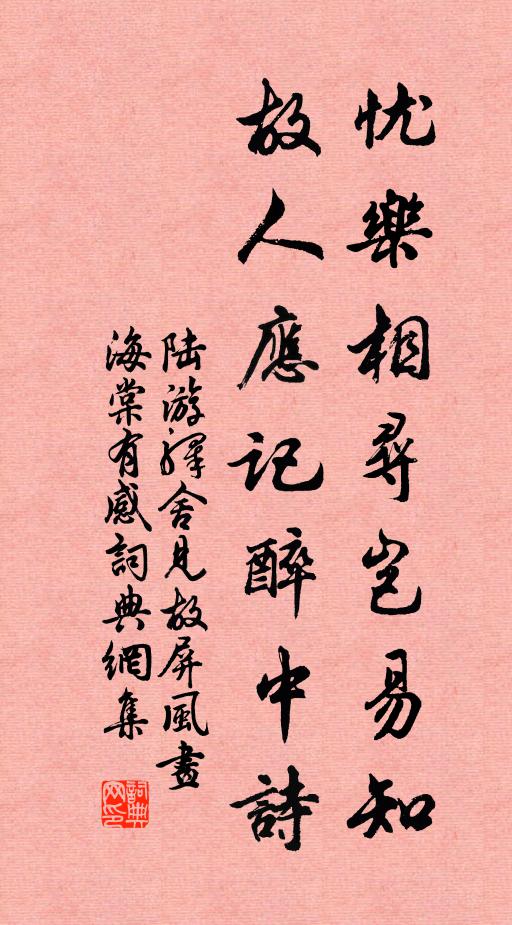 忧樂相尋豈易知
故人應記醉中詩
陆游驛舍見故屏風畫
海棠有感詞典網集
詞典网印